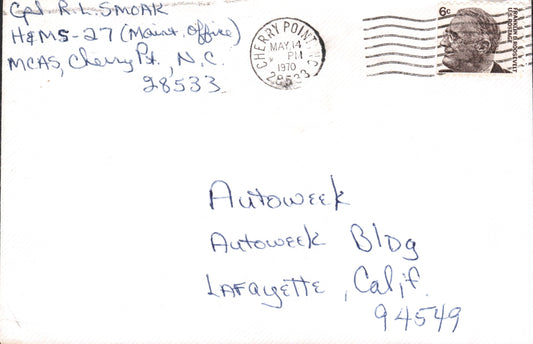 Cpl R.L. SMOAK
H&MS-27 (Maint. Office)
MCAS, Cherry Pt., N.C.
28533
CHERRY POINT, NC
MAY 14
PM
1970
28533
6c
FRANKLIN D ROOSEVELT
U.S. POSTAGE
Autoweek
Autoweek Bldg
LaFayette, Calif.
94549